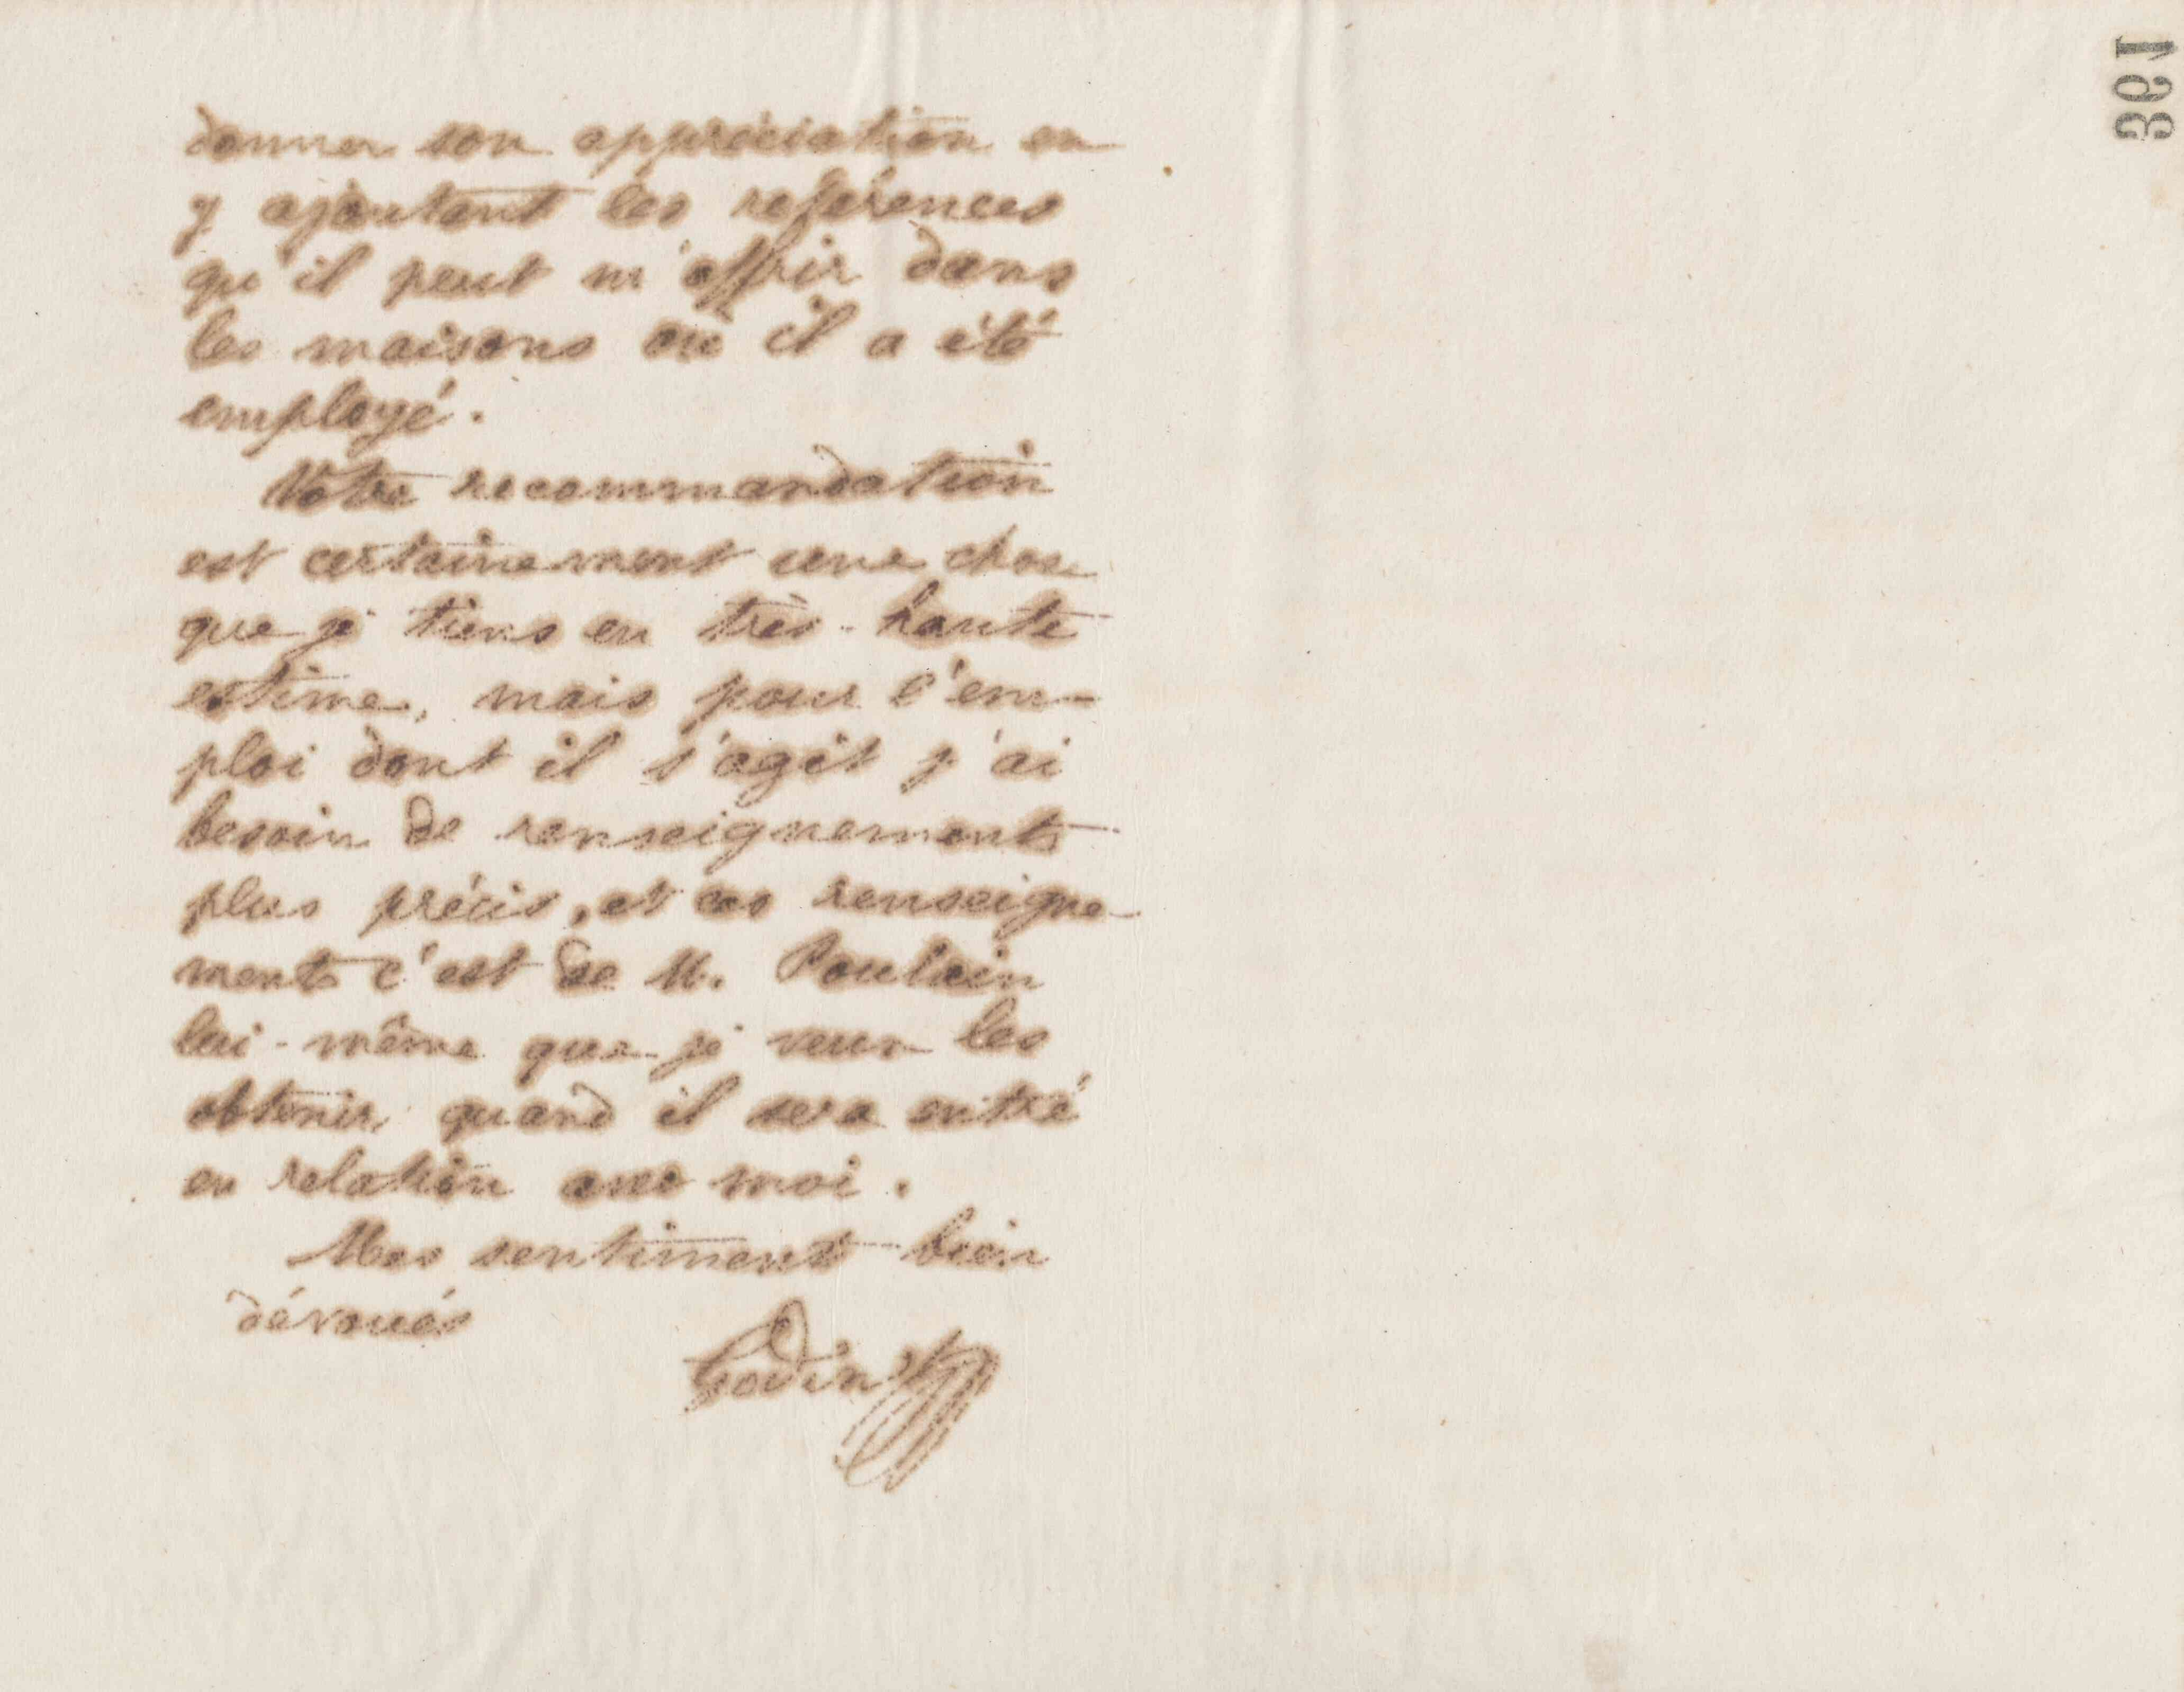 donner son appréciation en
y ajoutant les références
qu'il peut m'offrir dans
les maisons où il a été
employé.
Votre recommandation
est certainement une chose
que je tiens en très-haute
estime, mais pour l'em-
ploi dont il s'agit j'ai
besoin de renseignements
plus précis, et ces renseigne-
ments c'est de M. Poulain
lui-même que je veux les
obtenir, quand il sera entré
en relation avec moi.
Mes sentiments bien
dévoués
Godin